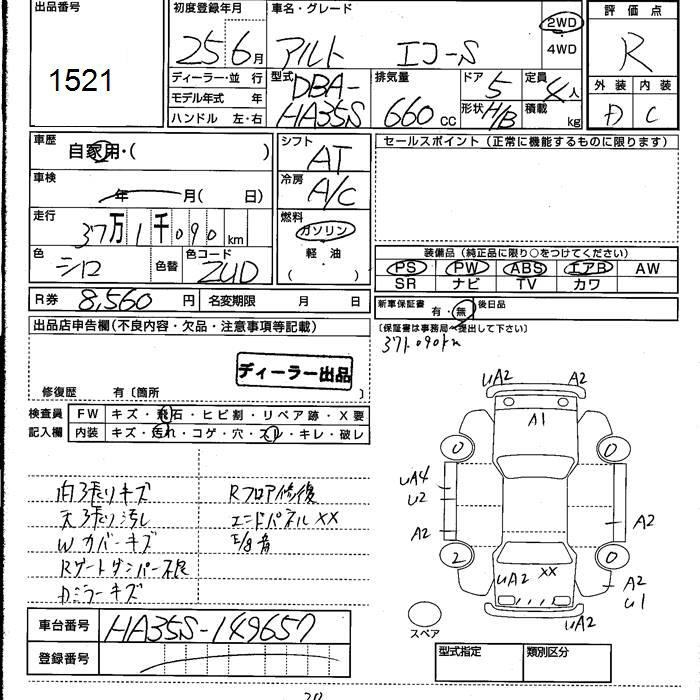 出品番号
1521
初度登録年月
25 6月
車名・グレード
アルト エコ-S
2WD
4WD
評価点
R
外装 内装
D C
ディーラー・並行
モデル年式 年
ハンドル 左・右
型式
DBA-
HA35S
排気量
660cc
ドア
5
形状 H/B
定員
4人
積載
kg
車歴
自家用・( )
車検
年 月( 日)
走行
37万1千090km
色
シロ
色替
色コード
ZUD
シフト
AT
冷房
A/C
燃料
ガソリン
軽油
( ・ )
セールスポイント(正常に機能するものに限ります)
装備品(純正品に限り○をつけてください)
PS PW ABS エアB AW
SR ナビ TV カワ
R券 8,560円
名変期限 月 日
新車保証書 有・無 後日品
(保証書は事務局へ提出して下さい)
371,090km
出品店申告欄(不良内容・欠品・注意事項等記載)
ディーラー出品
修復歴 有〔箇所 〕
検査員
記入欄
FW キズ・飛石・ヒビ割・リペア跡・X要
内装 キズ・汚れ・コゲ・穴・スレ・キレ・破レ
内張りキズ
天張り汚レ
Wカバーキズ
Rゲートダンパー不良
Dミラーキズ
Rフロア修復
エンドパネルXX
E/g音
UA2
A2
A1
0
0
UA4
U2
A2
A2
2
0
UA2
XX
A2
U1
UA2
スペア
車台番号 HA35S-149657
登録番号
型式指定
類別区分